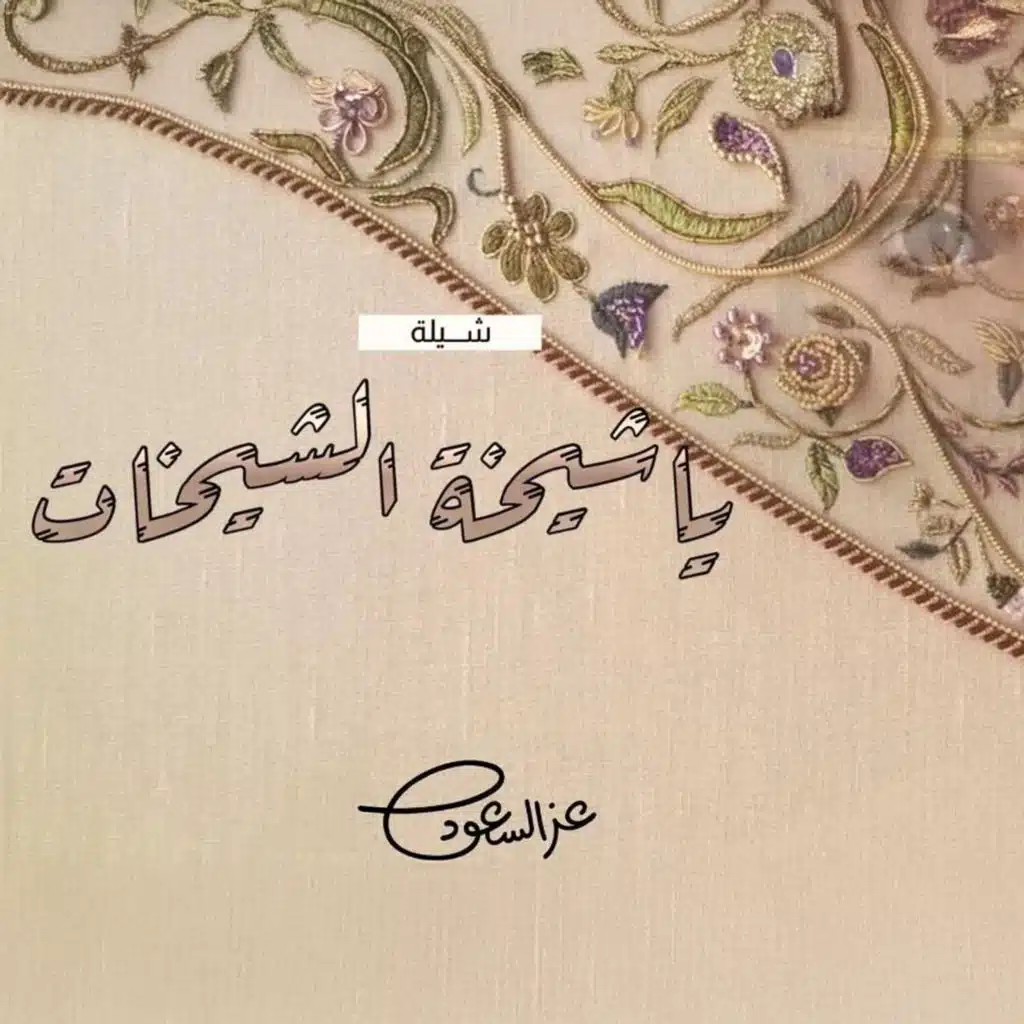 شيلة
ياشيخة الشيخات
عزالسعود